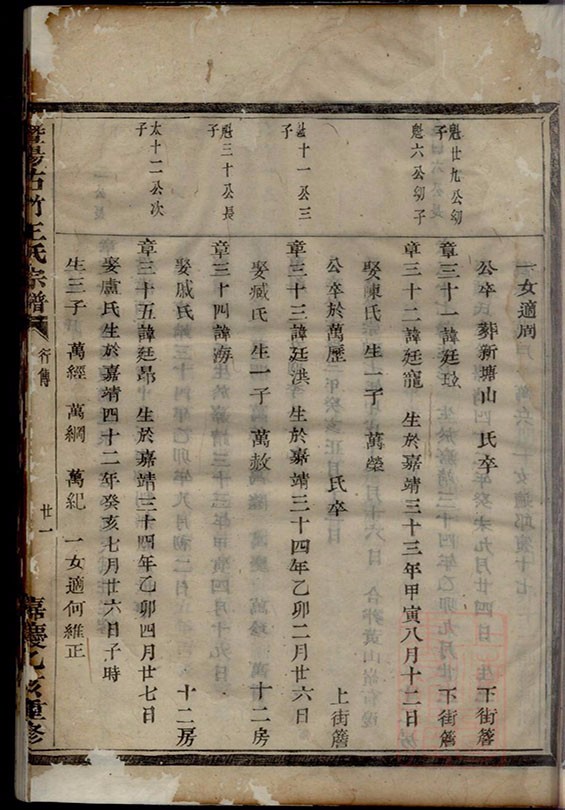 一女適周
公卒葬新塘山 氏卒 下街簷
魁廿九公幼子
章三十一諱廷
下街簷
魁六公幼子
章三十二諱廷寵 生於嘉靖三十三年甲寅八月十二日
娶陳氏 生一子 萬榮
公卒於萬歷 氏卒 上街簷
十一公三子
章三十三諱廷洪 生於嘉靖三十四年乙卯二月廿六日
娶臧氏 生一子 萬赦 十二房
魁三十公長子
章三十四諱海
娶戚氏 十二房
太十二公次子
章三十五諱廷昂 生於嘉靖三十四年乙卯四月廿七日
娶盧氏生於嘉靖四十二年癸亥七月廿六日子時
生三子 萬經 萬綱 萬紀 一女適何維正
暨陽古竹王氏宗譜 行傳 廿一 嘉慶乙亥重修